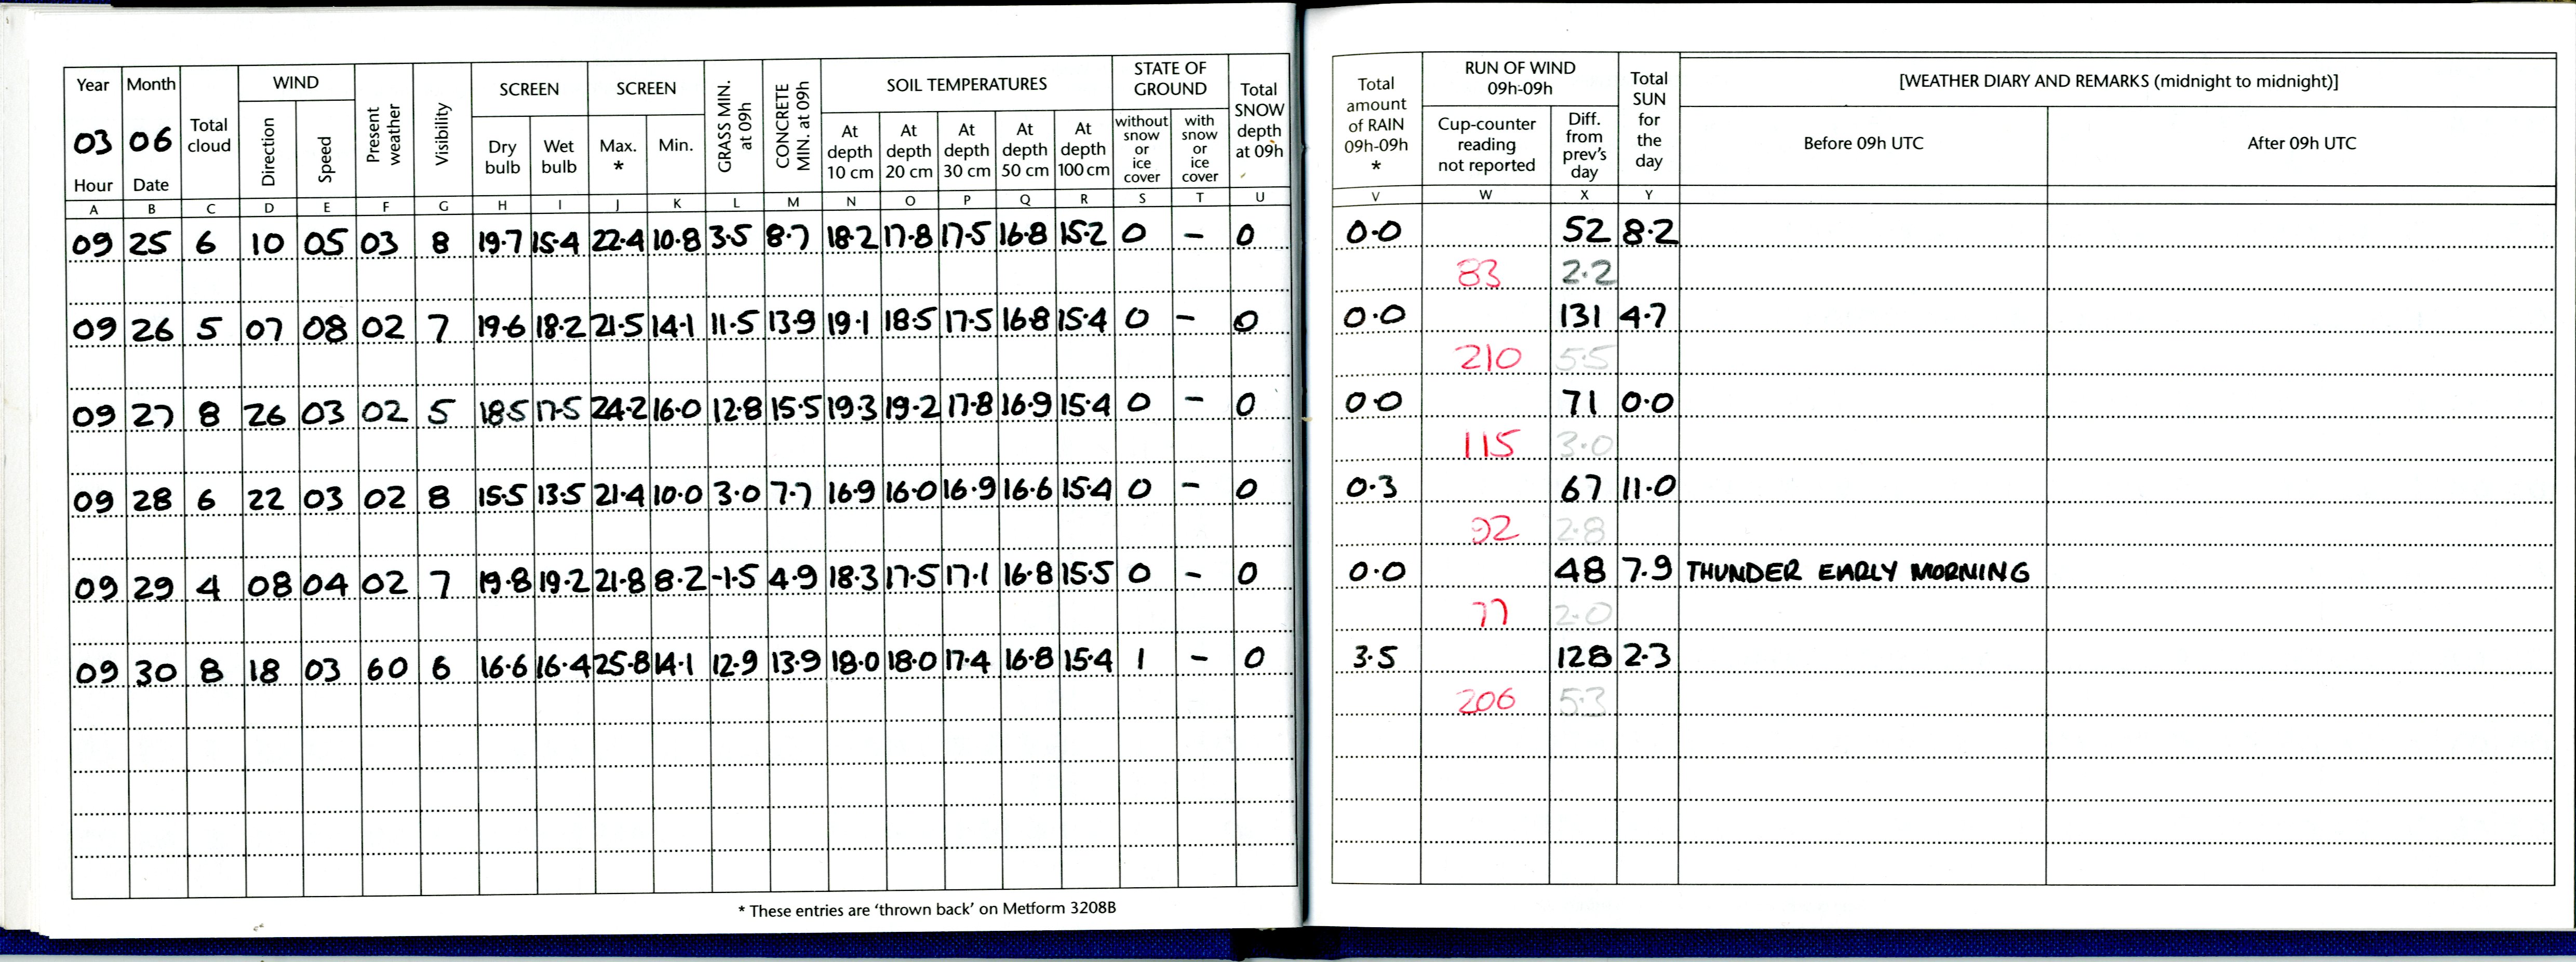 Year Month WIND SCREEN SCREEN SOIL TEMPERATURES STATE OF GROUND
03 06 Total cloud Direction Speed Present weather Visibility Dry bulb Wet bulb Max. * Min. GRASS MIN. at 09h CONCRETE MIN. at 09h At depth 10 cm At depth 20 cm At depth 30 cm At depth 50 cm At depth 100 cm without snow or ice cover with snow or ice cover Total SNOW depth at 09h
Hour Date
A B C D E F G H I J K L M N O P Q R S T U
09 25 6 10 05 03 8 19.7 15.4 22.4 10.8 3.5 8.7 18.2 17.8 17.5 16.8 15.2 0 - 0
09 26 5 07 08 02 7 19.6 18.2 21.5 14.1 11.5 13.9 19.1 18.5 17.5 16.8 15.4 0 - 0
09 27 8 26 03 02 5 18.5 17.5 24.2 16.0 12.8 15.5 19.3 19.2 17.8 16.9 15.4 0 - 0
09 28 6 22 03 02 8 15.5 13.5 21.4 10.0 3.0 7.7 16.9 16.0 16.9 16.6 15.4 0 - 0
09 29 4 08 04 02 7 19.8 19.2 21.8 8.2 -1.5 4.9 18.3 17.5 17.1 16.8 15.5 0 - 0
09 30 8 18 03 60 6 16.6 16.4 25.8 14.1 12.9 13.9 18.0 18.0 17.4 16.8 15.4 1 - 0
* These entries are 'thrown back' on Metform 3208B
Total amount of RAIN 09h-09h * RUN OF WIND 09h-09h Total SUN for the day [WEATHER DIARY AND REMARKS (midnight to midnight)]
Cup-counter reading not reported Diff. from prev's day Before 09h UTC After 09h UTC
V W X Y
0.0 52 8.2
83 2.2
0.0 131 4.7
210 5.5
0.0 71 0.0
115 3.0
0.3 67 11.0
92 2.8
0.0 48 7.9 THUNDER EARLY MORNING
77 2.0
3.5 128 2.3
206 5.3